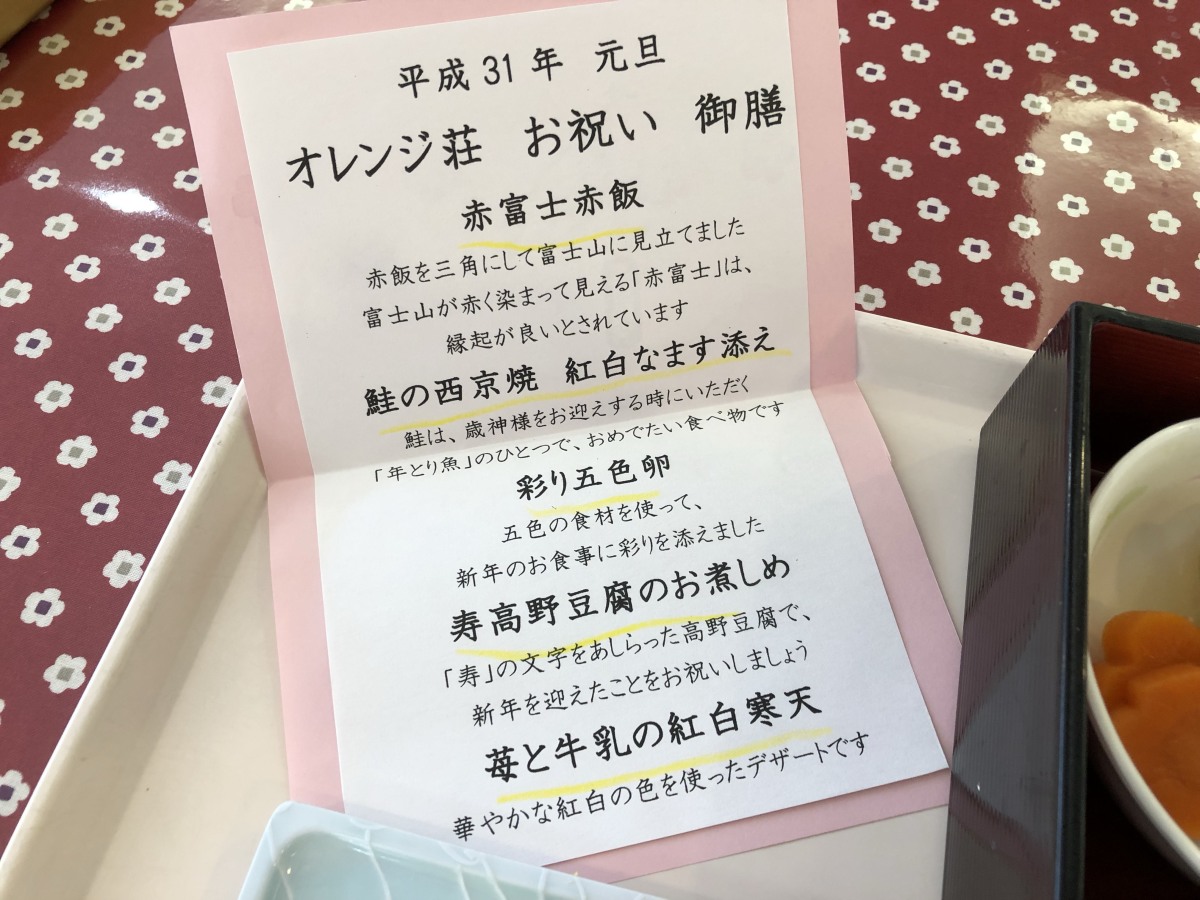 平成31年 元旦
オレンジ荘 お祝い 御膳
赤富士赤飯
赤飯を三角にして富士山に見立てました
富士山が赤く染まって見える「赤富士」は、
縁起が良いとされています
鮭の西京焼 紅白なます添え
鮭は、歳神様をお迎えする時にいただく
「年とり魚」のひとつで、おめでたい食べ物です
彩り五色卵
五色の食材を使って、
新年のお食事に彩りを添えました
寿高野豆腐のお煮しめ
「寿」の文字をあしらった高野豆腐で、
新年を迎えたことをお祝いしましょう
苺と牛乳の紅白寒天
華やかな紅白の色を使ったデザートです